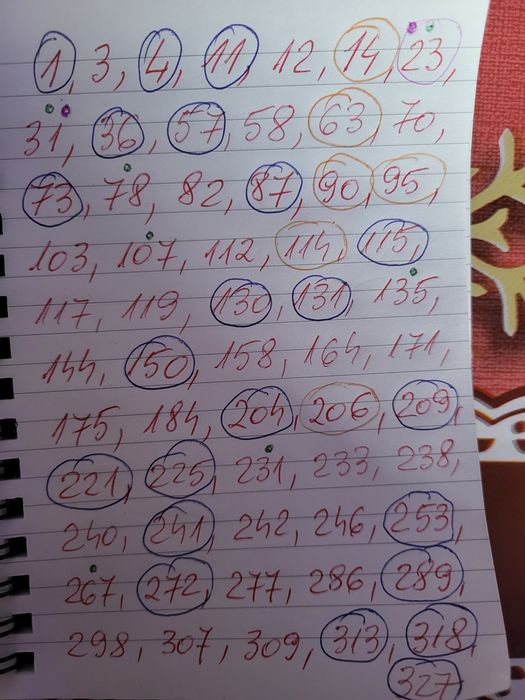 1, 3, 4, 11, 12, 14, 23,
31, 36, 57, 58, 63, 70,
73, 78, 82, 87, 90, 95,
103, 107, 112, 114, 115,
117, 119, 130, 131, 135,
144, 150, 158, 164, 171,
175, 184, 204, 206, 209,
221, 225, 231, 233, 238,
240, 241, 242, 246, 253,
267, 272, 277, 286, 289,
298, 307, 309, 313, 318,
327